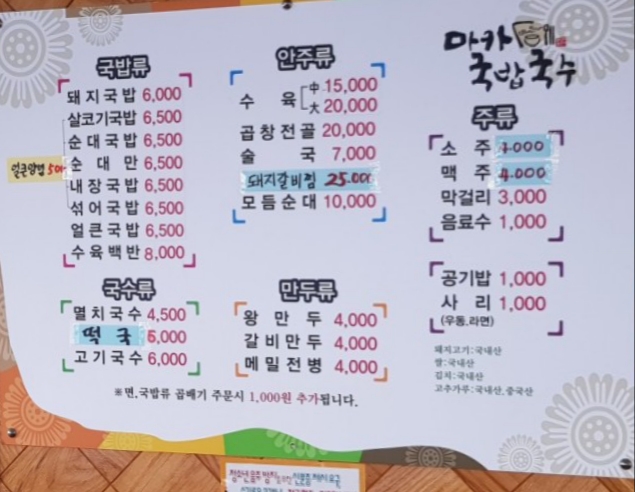 마카
국밥국수
국밥류
돼지국밥 6,000
살코기국밥 6,500
순대국밥 6,500
순대만 6,500
내장국밥 6,500
섞어국밥 6,500
얼큰국밥 6,500
수육백반 8,000
국수류
멸치국수 4,500
떡국 5,000
고기국수 6,000
안주류
수육 中 15,000
大 20,000
곱창전골 20,000
술국 7,000
돼지갈비찜 25,000
모듬순대 10,000
만두류
왕만두 4,000
갈비만두 4,000
메밀전병 4,000
주류
소주 4,000
맥주 4,000
막걸리 3,000
음료수 1,000
공기밥 1,000
사리 1,000
(우동,라면)
돼지고기:국내산
쌀:국내산
김치:국내산
고추가루:국내산,중국산
※면,국밥류 곱배기 주문시 1,000원 추가됩니다.